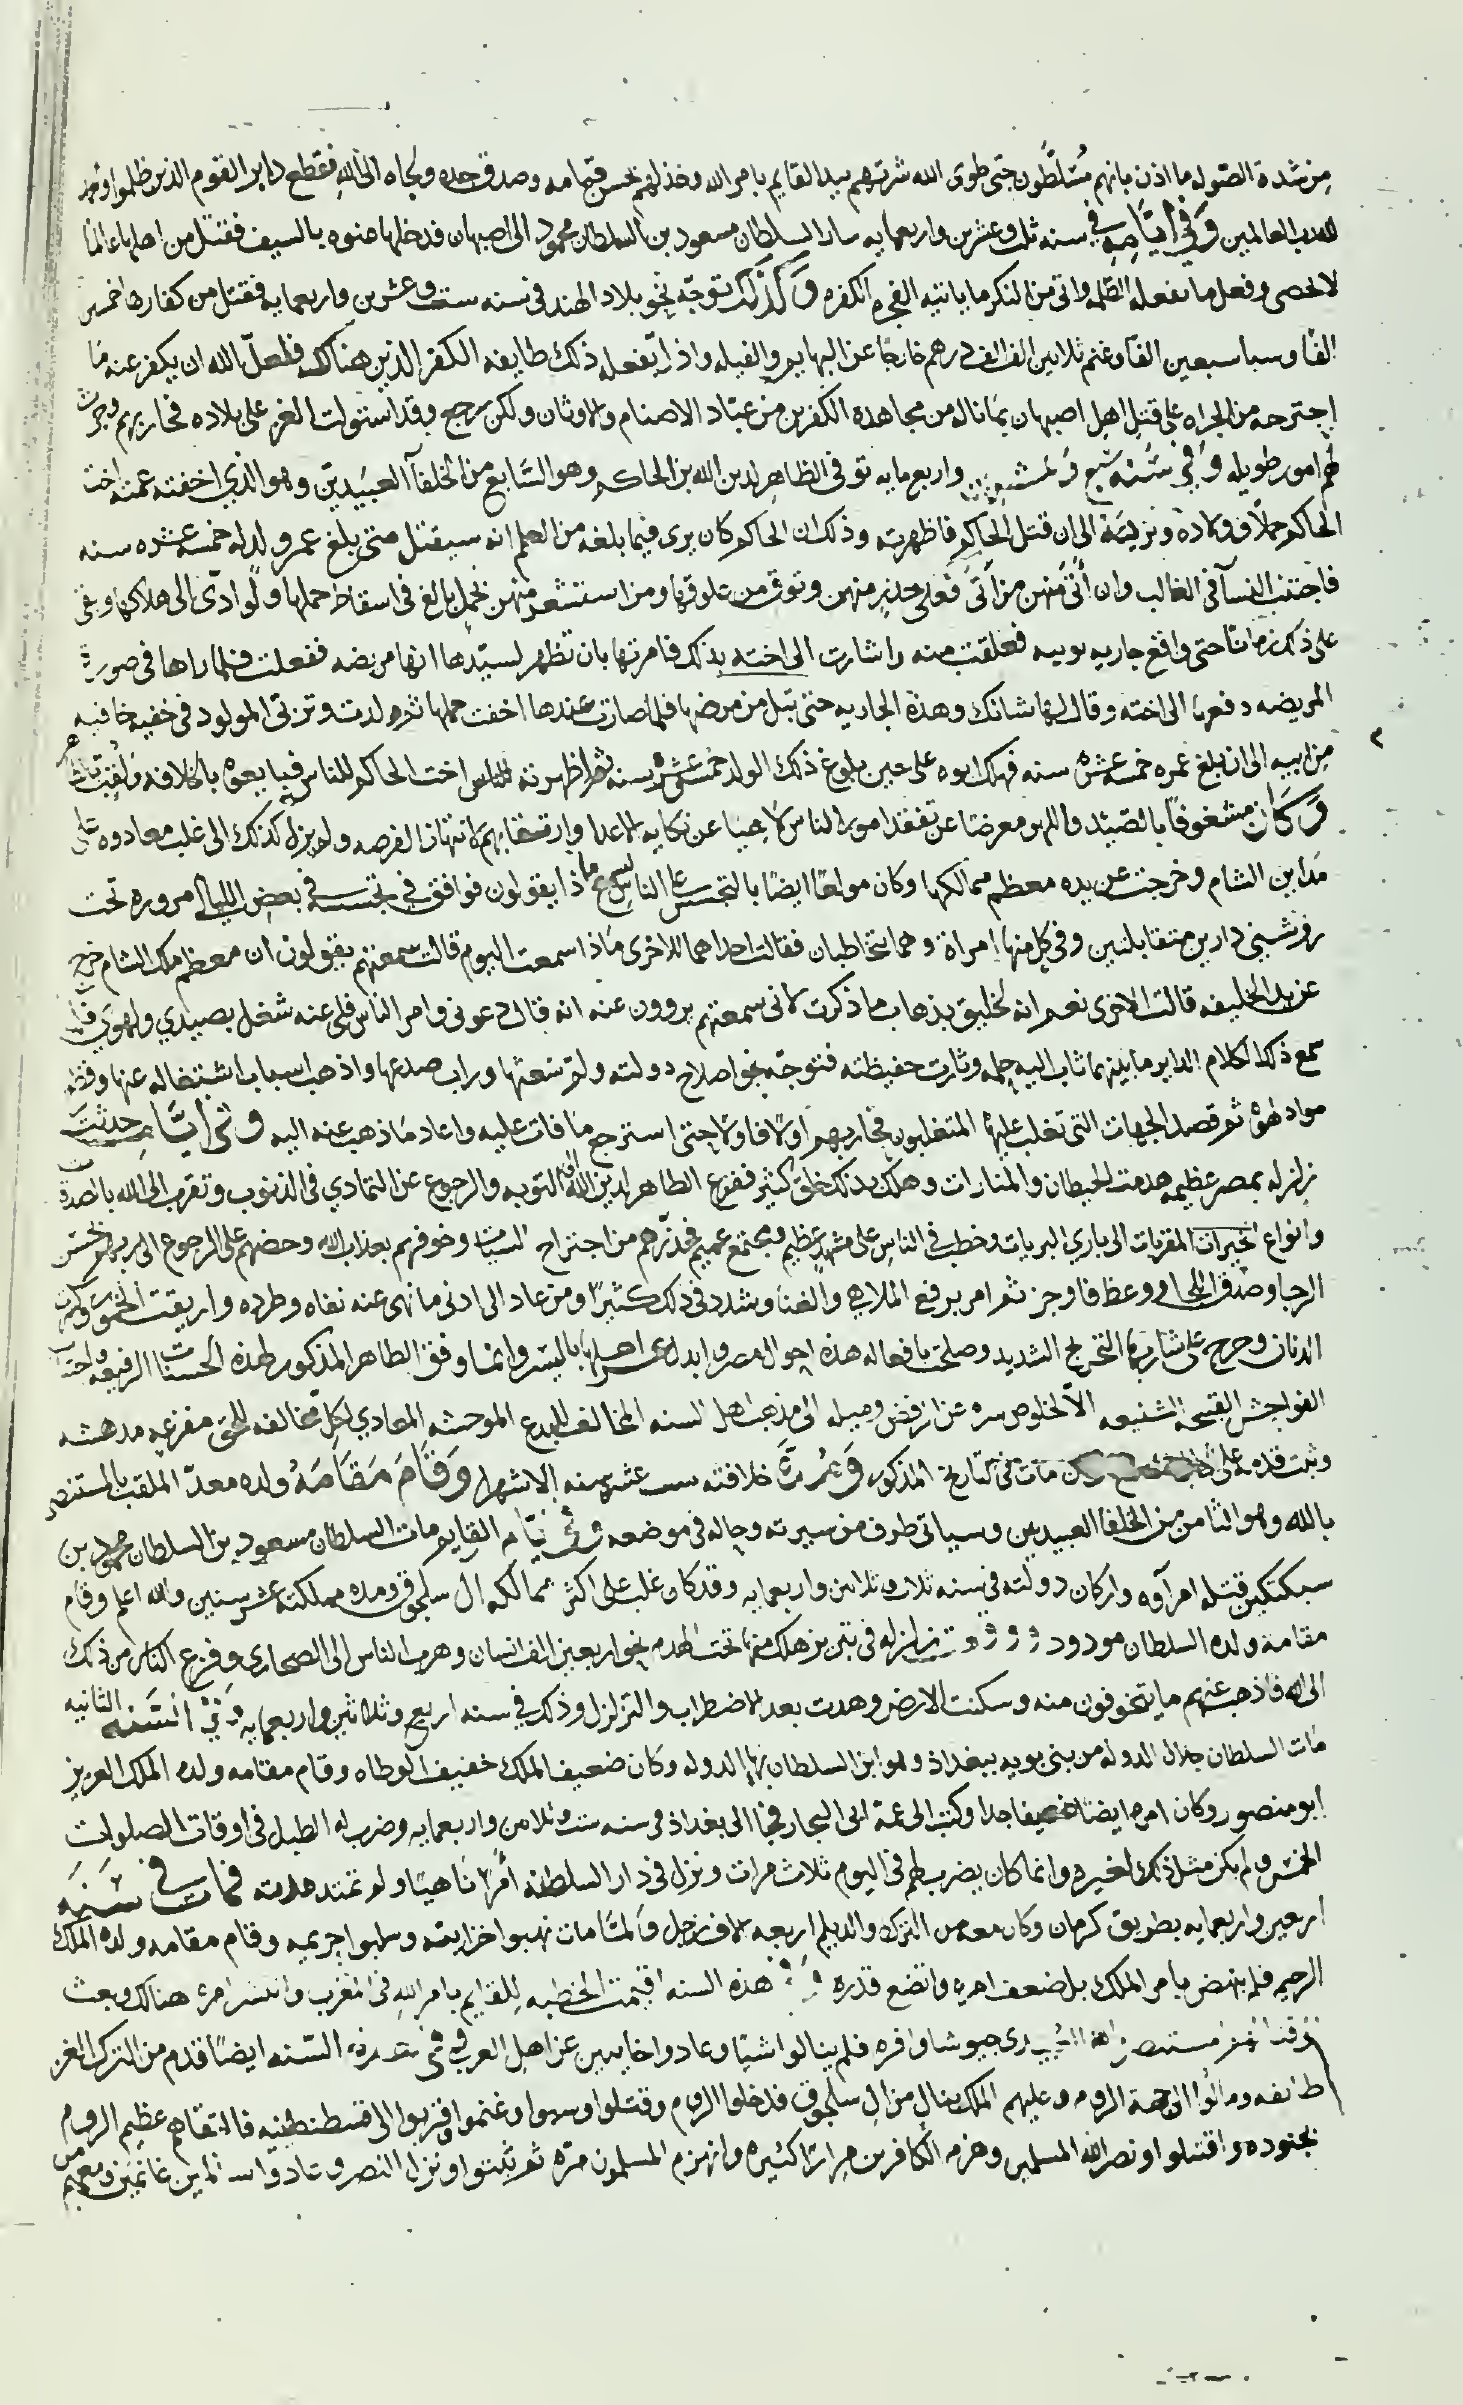 من شدة الصوله ما اذن بانهم مسلطون حتى طوى الله شرتهم بيد القايم بامر الله وخذلهم بحسن قيامه وصدق جده والجاه الى الله فقطع دابر القوم الذين ظلموا والحمد
لله رب العالمين وفي ايامه في سنه ثلث وعشرين واربعمايه سار السلطان مسعود بن السلطان محمود الى اصبهان فدخلها عنوه بالسيف فقتل من اهلها عالما
لا يحصى وفعل ما يفعله الظلمه واتى من المنكر ما ياتيه الفجره الكفره وكذلك توجه نحو بلاد الهند في سنه ست وعشرين واربعمايه فقتل من كفارها خمسين
الفا وسبا سبعين الفا وغنم ثلاثين الف الف درهم خارجا عن البهايم والفيله واذ اتفعله ذلك طايفه الكفر الذين هناك فلعل الله ان يكفر عنه ما
اجترحه من الجراه على قتل اهل اصبهان بما ناله من مجاهدة الكفرين من عباد الاصنام والاوثان ولكن رجع وقد استولت الغز على بلاده فحاربهم وجرت
لهم امور طويله وفي سنه سبع وعشرين واربع مايه توفى الظاهر لدين الله بن الحاكم وهو السابع من الخلفآ العبيديين وهو الذي اخفته عمته اخت
الحاكم حملا وولادة وتربية الى ان قتل الحاكم فاظهرته وذلك ان الحاكم كان يرى فيما بلغه من العلم انه سيقتل متى بلغ عمر ولد له خمسه عشره سنه
فاجتنب النسآ في الغالب وان اتى منهن من اتى فعلى حذر منهن وتوق من علوقها ومن استشعر منهن بحمل بالغ في اسقاط حملها ولو ادى الى هلاكها وبقى
على ذلك زمانا حتى واقع جاريه نوبيه فعلقت منه واشارت الى اخته بذلك فامرتها بان تظهر لسيدها انها مريضه ففعلت فلما راها في صورة
المريضه دفعها الى اخته وقال لها شانك وهذه الجاريه حتى تبل من مرضها فلما صارت عندها اخفت حملها ثم ولدت وتربى المولود في خفيه خافيه
من ابيه الى ان بلغ عمره خمسه عشره سنه فهلك ابوه على حين بلوغ ذلك الولد خمسه عشر سنه ثم اظهرته للناس اخت الحاكم للناس فبايعوه بالخلافه ولقبته بالظاهر
وكان مشغوفا بالصيد واللهو معرضا عن تفقد امور الناس لاهيا عن نكايه الاعدا وارتقابهم لانتهاز الفرصه ولم يزل كذلك الى غلب معادوه على
مداين الشام وخرجت عن يده معظم ممالكها وكان مولعا ايضا بالتجسس على الناس ماذا يقولون فوافق في تجسسه في بعض الليالي مروره تحت
روشنى دارين متقابلتين وفى كل منها امراة وهما يتخاطبان فقالت احداهما للاخرى ماذا سمعت اليوم قالت سمعتهم يقولون ان معظم ملك الشام خرج
عن يد الخليفه قالت الاخرى نعم انه لخليق بذهاب ما ذكرت لانى سمعتهم يروون عنه انه قال دعونى وامر الناس فلى عنه شغل بصيدي ولهوي فلما
سمع ذلك الكلام الداير ما بينهما ثاب اليه حلمه وثارت حفيظته فتوجه نحو اصلاح دولته ولم شعثها وراب صدعها واذهب اسباب اشتغاله عنها وقطع
مواد لهوه ثم قصد الجهات التى تغلب عليها المتغلبون فحاربهم اولا فاولا حتى استرجع ما فات عليه واعاد ما ذهب عنه اليه وفي ايامه حدثت
زلزله بمصر عظيمه هدمت الحيطان والمنارات وهلك بذلك خلق كثير ففزع الظاهر لدين الله الى التوبه والرجوع عن التمادي فى الذنوب وتقرب الى الله بالصدقات
وانواع الخيرات المقربات الى باري البريات وخطب فى الناس على مشهد عظيم ومجتمع عميم فحذرهم من اجتراح السيات وخوفهم بعذاب الله وحضهم على الرجوع الى ربهم بحسن
الرجا وصدق اللجا ووعظ فاوجز ثم امر برفع الملاهي والغنا وشدد في ذلك كثيرا ومن عاد الى ادنى ما نهى عنه نفاه وطرده واريقت الخمور وكسرت
الدنان وحرج على شاربها التحرج الشديد وصلحت بافعاله هذه احوال مصر وابدل عسر اهلها باليسر وانما وفق الظاهر المذكور لهذه الحسنات الرفيعه واجتناب
الفواحش القبيحه الشنيعه الا لخلوص سره عن الرفض وميله الى مذهب اهل السنه المخالف للبدع الموحشه المعادي لكل مخالفه للحق مفزعه مدهشه
وثبت قدمه على مات فى التاريخ المذكور ومدة خلافته ست عشره سنه الا شهرا وقام مقامه ولده معد الملقب بالمستنصر
بالله وهو الثامن من الخلفا العبيديين وسياتى طرف من سيرته وحاله فى موضعه وفي ايام القايم مات السلطان مسعود بن السلطان محمود بن
سبكتكين قتله امرآوه واركان دولته فى سنه ثلاث وثلاثين واربعمايه وقد كان غلب على اكثر ممالكه ال سلجوق ومده مملكته عشر سنين والله اعلم وقام
مقامه ولده السلطان مودود زلزله فى تبريز هلك منها تحت الهدم نحو اربعين الف انسان وهرب الناس الى الصحارى وفزع الناس من ذلك
الى الله فاذهب عنهم ما يتخوفون منه وسكنت الارض وهدت بعد الاضطراب والتزلزل وذلك في سنه اربع وثلاثين واربعمايه وفي السنه الثانيه
مات السلطان جلال الدوله من بنى بويه ببغداد وهو ابن السلطان بها الدوله وكان ضعيف الملك خفيف الوطاه وقام مقامه ولده الملك العزيز
ابو منصور وكان امره ايضا ضعيفا جدا وكتب الى عمه ابى كاليجار فجا الى بغداد فى سنه ست وثلاثين واربعمايه وضرب له الطبل فى اوقات الصلوات
الخمس ولم يكن مثل ذلك لغيره وانما كان يضرب لهم فى اليوم ثلاث مرات ونزل فى دار السلطنه امرا ناهيا ولم تمتد مدته فمات في سنه
اربعين واربعمايه بطريق كرمان وكان معه من الترك والديلم اربعه الاف رجل ولما مات نهبوا خزاينه وسلبوا حريمه وقام مقامه ولده الملك
الرحيم فلم ينهض بامر الملك بل ضعف امره واتضع قدره وفي هذه السنه اقيمت الخطبه للقايم بامر الله فى المغرب وانتشر امره هنالك وبعث
المستنصر العبيدى جيوشا وافره فلم ينالوا شيا وعادوا خايبين عن اهل الغرب وفي هذه السنه ايضا قدم من الترك الغز
طايفه ومالوا الى جهة الروم وعليهم الملك ينال من ال سلجوق فدخلوا الروم وقتلوا وسبوا وغنموا وقربوا الى قسطنطينيه فالتقاهم عظيم الروم
بجنوده واقتتلوا ونصر الله المسلمين وهزم الكافرين مرارا كثيره وانهزم المسلمون مرة ثم ثبتوا ونزل النصر وعادوا سالمين غانمين ومعهم من